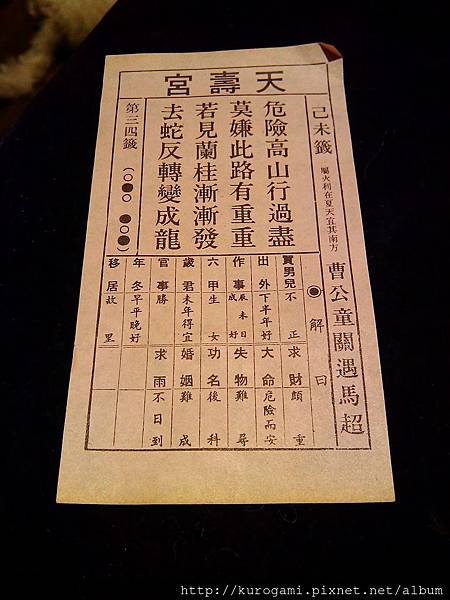 天壽宮
己未籤
屬火利在夏天宜其南方
曹公童關遇馬超
危險高山行過盡
莫嫌此路有重重
若見蘭桂漸漸發
去蛇反轉變成龍
第三四籤
解曰
買男兒 不正 求財 頗重
出外 下半年好 大命 危險而安
作事 辰未日成好 失物 難尋
六甲 生女 功名 後科
歲君 未年得宜 婚姻 難成
官事 勝 求雨 不日到
年冬 早平晚好
移居 故里
http://kurogami.pixnet.net/album